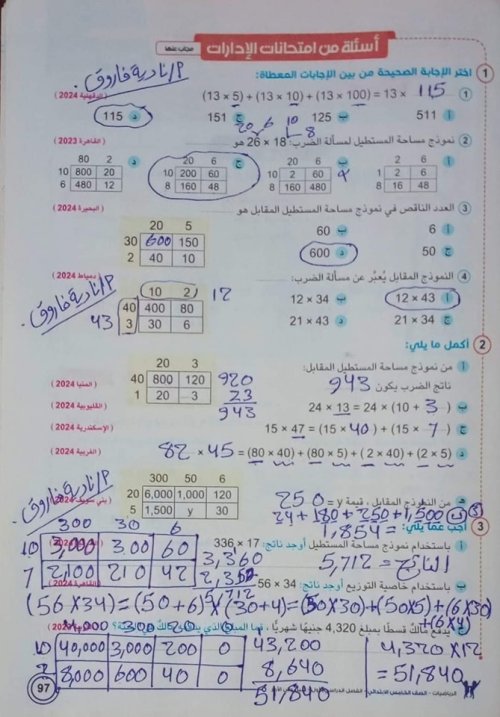 أسئلة من امتحانات الإدارات مجاب عنها
1 اختر الإجابة الصحيحة من بين الإجابات المعطاة:
P/نادية فاروق
1 (13 × 5) + (13 × 10) + (13 × 100) = 13 × 115 (الدقهلية 2024)
أ 511 ب 125 ج 151 د 115
20 6 10 8
2 نموذج مساحة المستطيل لمسألة الضرب: 18 × 26 هو (القاهرة 2023)
أ ب ج د
2 6 20 6 20 6 80 2
1 2 6 10 2 60 10 200 60 10 800 20
8 16 48 8 160 480 8 160 48 6 480 12
3 العدد الناقص في نموذج مساحة المستطيل المقابل هو (البحيرة 2024)
أ 6 ب 60
ج 50 د 600
20 5
30 600 150
2 40 10
4 النموذج المقابل يُعبِّر عن مسألة الضرب: (دمياط 2024)
أ 12 × 43 ب 12 × 34
ج 21 × 34 د 21 × 43
10 2 12
40 400 80
43 3 30 6
P/نادية فاروق
2 أكمل ما يلي:
أ من نموذج مساحة المستطيل المقابل:
ناتج الضرب يكون 943 (المنيا 2024)
20 3
40 800 120
1 20 3
920
23
943
ب 24 × 13 = 24 × (10 + 3) (القليوبية 2024)
ج 15 × 47 = (15 × 40) + (15 × 7) (الإسكندرية 2024)
د 82 × 45 = (80 × 40) + (80 × 5) + (2 × 40) + (2 × 5) (الغربية 2024)
300 50 6
20 6,000 1,000 120
5 1,500 y 30
هـ من النموذج المقابل ، قيمة y = 250 (بني سويف 2024)
P/نادية فاروق
24 + 180 + 250 + 1,500
1,854 =
3 أجب عما يلي:
أ باستخدام نموذج مساحة المستطيل أوجد ناتج: 17 × 336
300 30 6
10 3,000 300 60
7 2,100 210 42
3,360
2,352
5,712
الناتج = 5,712
ب باستخدام خاصية التوزيع أوجد ناتج: 34 × 56
(56 X 34) = (50 + 6) X (30 + 4) = (50 X 30) + (50 X 5) + (6 X 30)
+ (6 X 4)
يدفع مالك قسطًا بمبلغ 4,320 جنيهًا شهريًّا
4,000 300 20 0
10 40,000 3,000 200 0
2 8,000 600 40 0
43,200
8,640
51,840
4,320 X 12
= 51,840
97 الرياضيات - الصف الخامس الابتدائي - الفصل الدراسي الأول